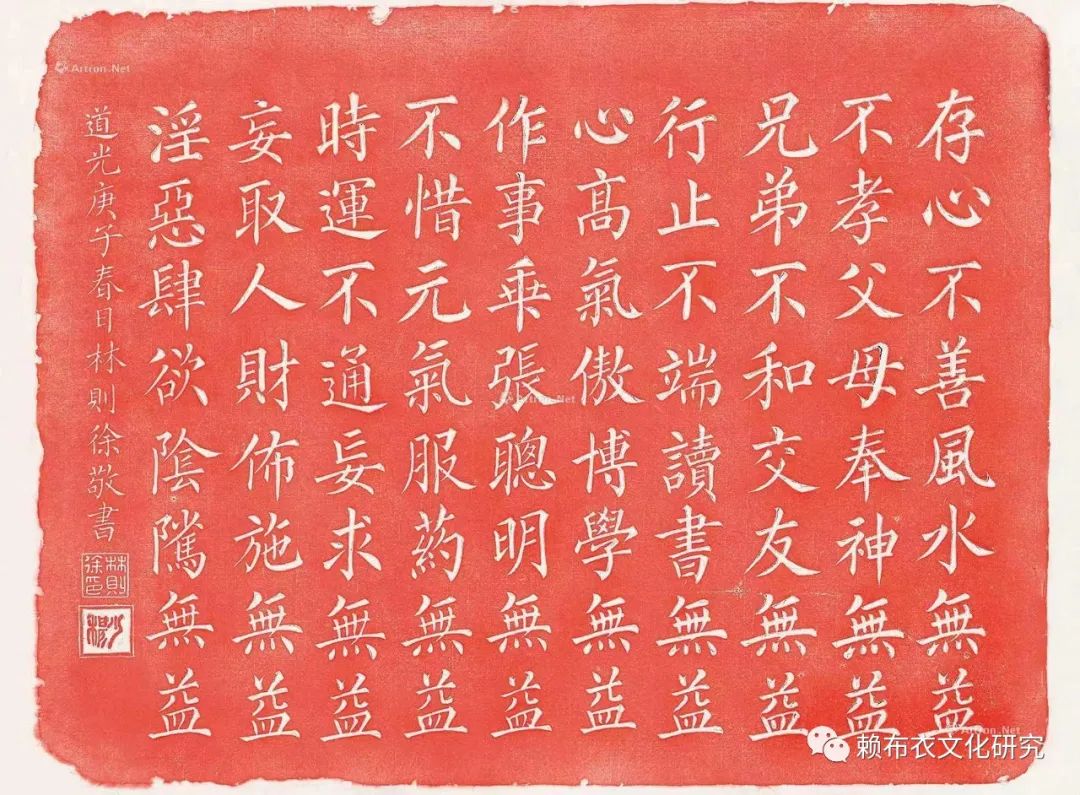 存心不善風水無益
不孝父母奉神無益
兄弟不和交友無益
行止不端讀書無益
心髙氣傲博學無益
作事乖張聰明無益
不惜元氣服葯無益
時運不通妄求無益
妄取人財佈施無益
淫惡肆欲陰騭無益
道光庚子春日林則徐敬書
林則徐印
少穆
Artron.Net
Artron.Net
Artron.Net
赖布衣文化研究